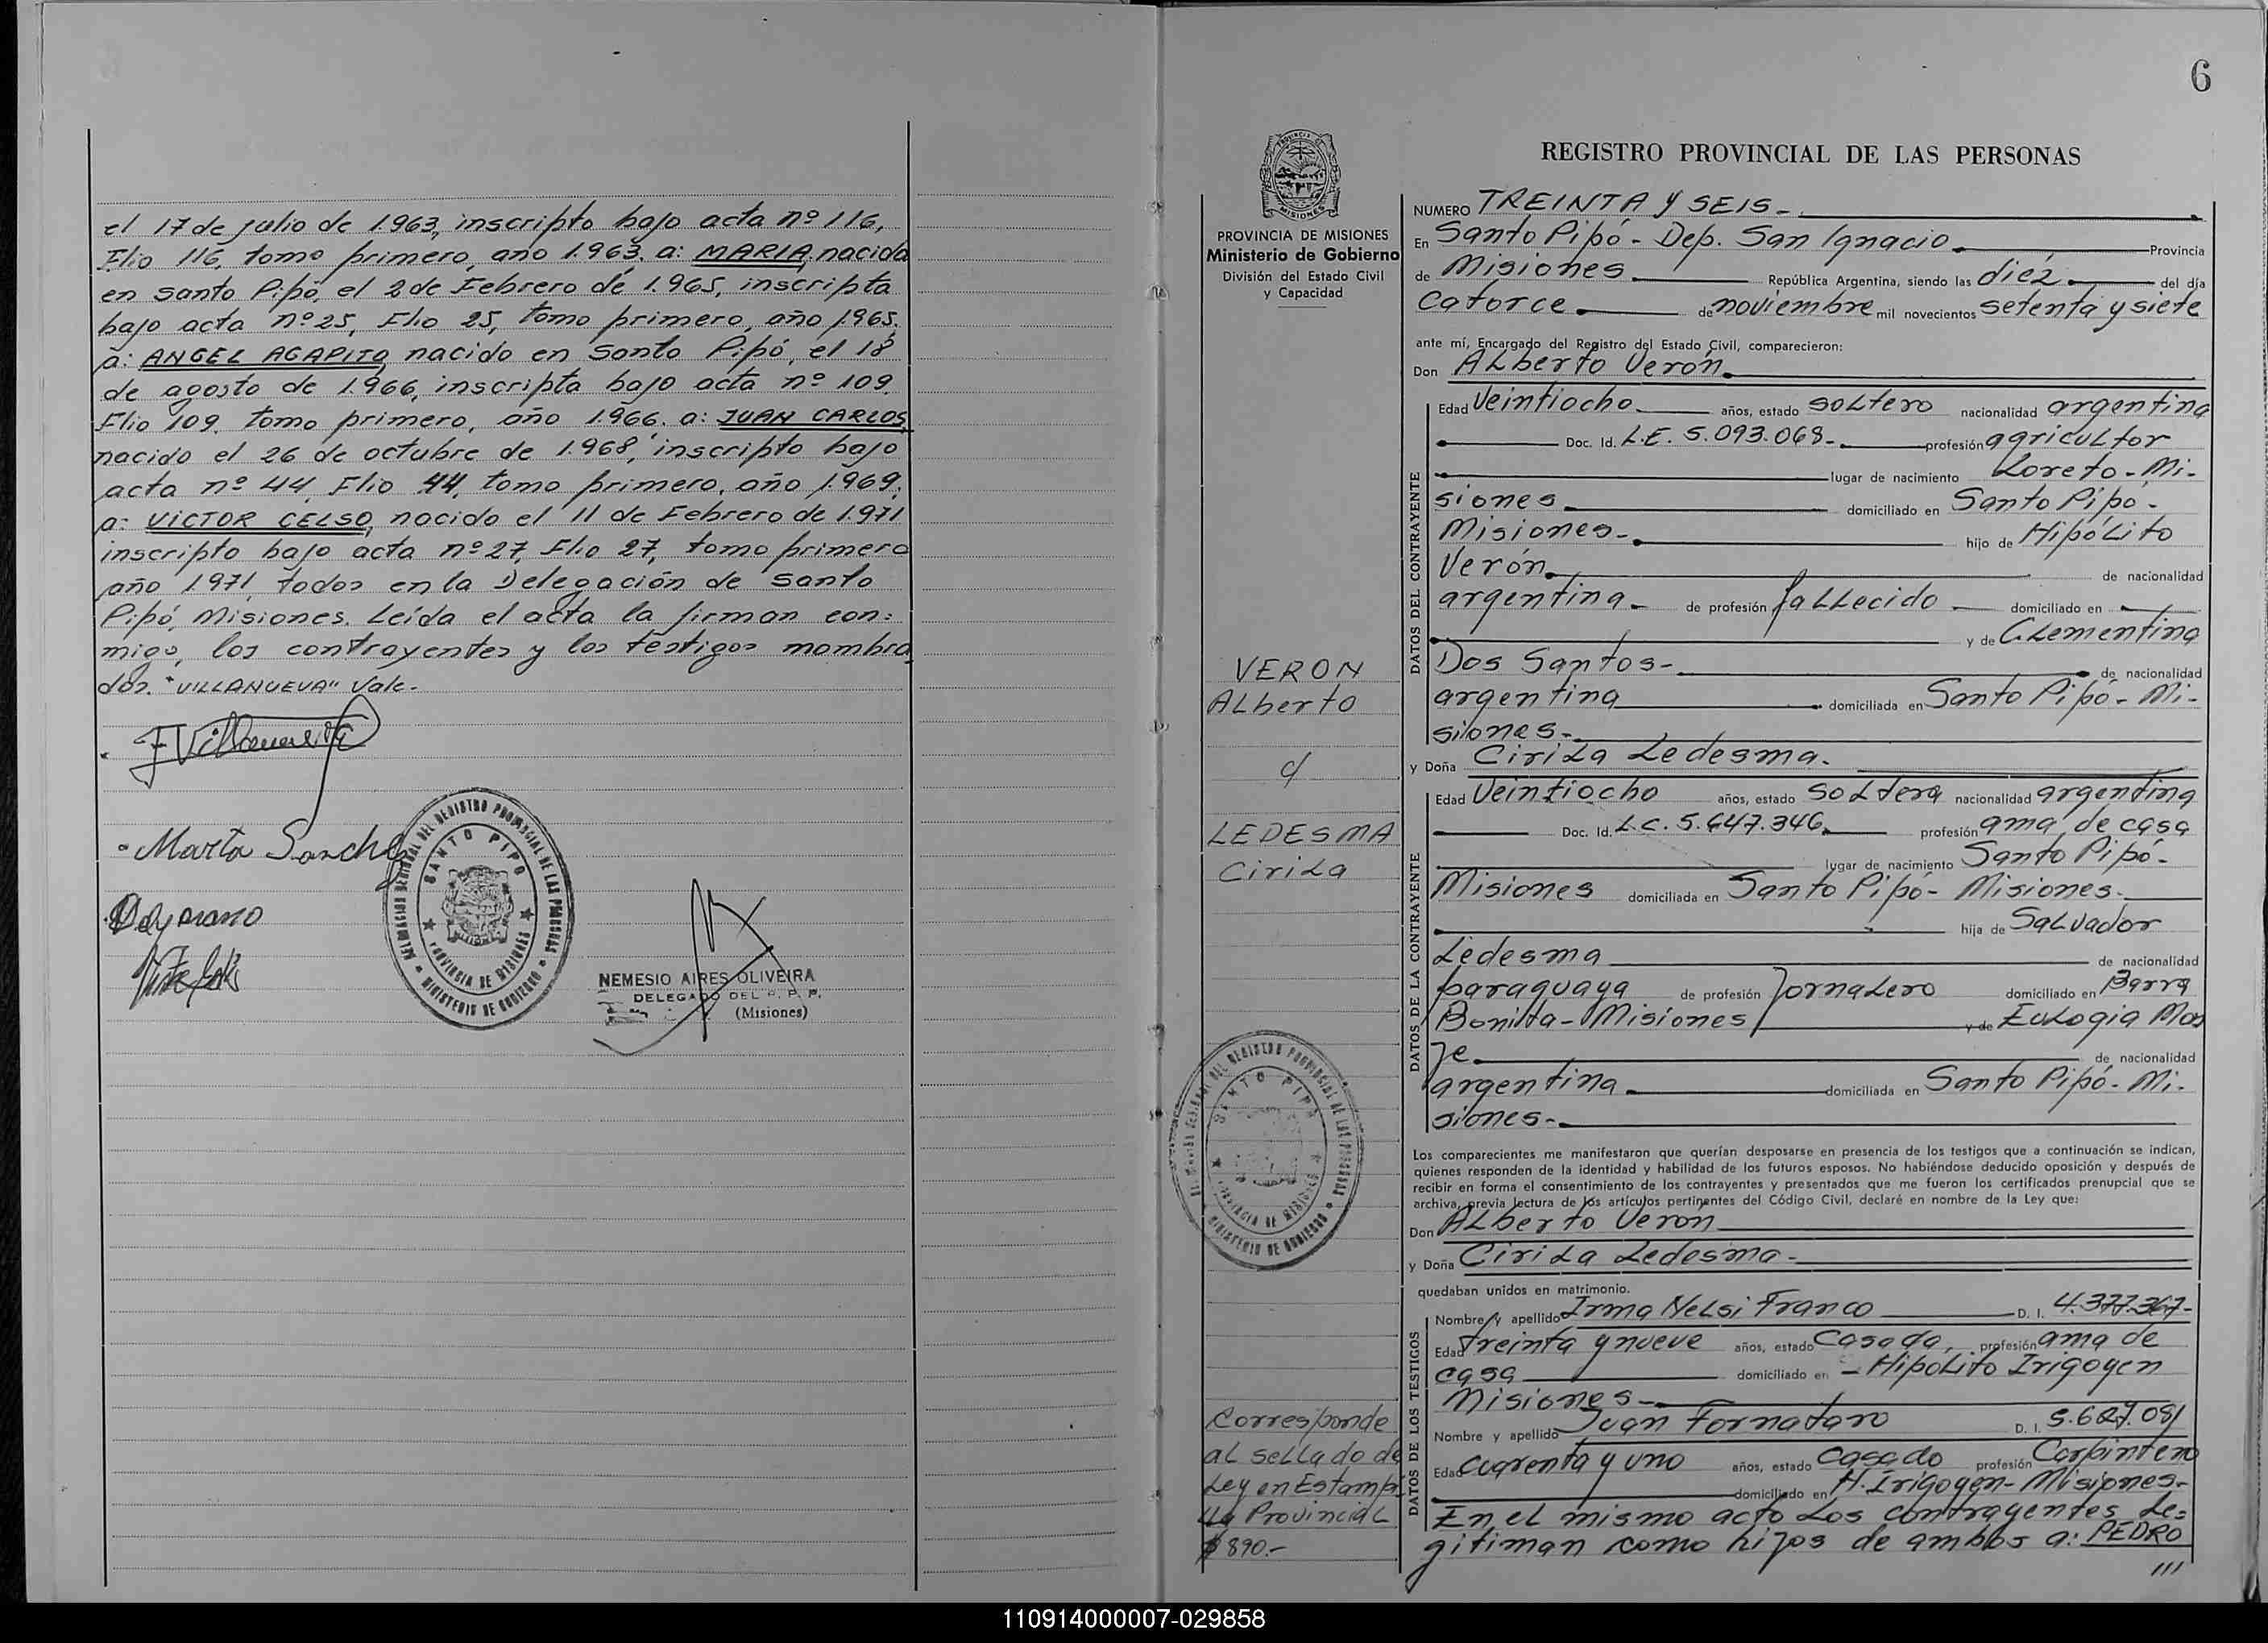 el 17 de julio de 1.963, inscripto bajo acta nº 116,
Flio 116, tomo primero, año 1.963, a: MARIA, nacida
en Santo Pipó, el 2 de Febrero de 1.965, inscripta
bajo acta nº 25, Flio 25, tomo primero, año 1.965.
a: ANGEL AGAPITO nacido en Santo Pipó, el 18
de agosto de 1.966, inscripta bajo acta nº 109.
Flio 109. tomo primero, año 1.966. a: JUAN CARLOS,
nacido el 26 de octubre de 1.968, inscripto bajo
acta nº 44, Flio 44, tomo primero, año 1.969,
a: VICTOR CELSO, nacido el 11 de Febrero de 1.971
inscripto bajo acta nº 27, Flio 27, tomo primero
año 1.971, todos en la Delegación de Santo
Pipó, Misiones. Leída el acta la firman con=
migo, los contrayentes y los testigos mombra
dos. "VILLANUEVA" Vale.-
FVillanueva
Marta Sanchez
NEMESIO AIRES OLIVEIRA
DELEGADO DEL R. P. P.
(Misiones)
SANTO PIPO
PROVINCIA DE MISIONES
MINISTERIO DE GOBIERNO
6
PROVINCIA DE MISIONES
Ministerio de Gobierno
División del Estado Civil
y Capacidad
VERON
Alberto
c/
LEDESMA
Cirila
SANTO PIPO
PROVINCIA DE MISIONES
MINISTERIO DE GOBIERNO
Corresponde
al sellado de
Ley en Estampi
lla Provincial
$ 890.-
REGISTRO PROVINCIAL DE LAS PERSONAS
NUMERO TREINTA Y SEIS-.
En Santo Pipó - Dep. San Ignacio. Provincia
de Misiones República Argentina, siendo las diéz del día
catorce de noviembre mil novecientos setenta y siete
ante mí, Encargado del Registro del Estado Civil, comparecieron:
Don Alberto Verón.
DATOS DEL CONTRAYENTE
Edad Veintiocho. años, estado soltero nacionalidad argentina
Doc. Id. L.E. 5.093.068-. profesión agricultor
lugar de nacimiento Loreto - Mi-
siones domiciliado en Santo Pipó -
Misiones-. hijo de Hipólito
Verón. de nacionalidad
argentina- de profesión fallecido domiciliado en
y de Clementina
Dos Santos- de nacionalidad
argentina domiciliada en Santo Pipó - Mi-
siones-
y Doña Cirila Ledesma.
DATOS DE LA CONTRAYENTE
Edad Veintiocho años, estado soltera nacionalidad argentina
Doc. Id. L.C. 5.647.346. profesión ama de casa
lugar de nacimiento Santo Pipó -
Misiones domiciliada en Santo Pipó - Misiones-
hija de Salvador
Ledesma de nacionalidad
paraguaya de profesión Jornalero domiciliado en Barra
Bonita - Misiones y de Eulogia Mon
je de nacionalidad
argentina domiciliada en Santo Pipó - Mi-
siones-.
Los comparecientes me manifestaron que querían desposarse en presencia de los testigos que a continuación se indican,
quienes responden de la identidad y habilidad de los futuros esposos. No habiéndose deducido oposición y después de
recibir en forma el consentimiento de los contrayentes y presentados que me fueron los certificados prenupcial que se
archiva, previa lectura de los artículos pertinentes del Código Civil, declaré en nombre de la Ley que:
Don Alberto Veron
y Doña Cirila Ledesma-
quedaban unidos en matrimonio.
DATOS DE LOS TESTIGOS
Nombre y apellido Irma Nelsi Franco D. I. 4.377.367-
Edad treinta y nueve años, estado casada, profesión ama de
casa domiciliado en - Hipolito Irigoyen
Misiones-
Nombre y apellido Juan Fornataro D. I. 5.627.081
Edad cuarenta y uno años, estado casado profesión Carpintero
domiciliado en H. Irigoyen - Misiones-
En el mismo acto los contrayentes le=
gitiman como hijos de ambos a: PEDRO
///
110914000007-029858